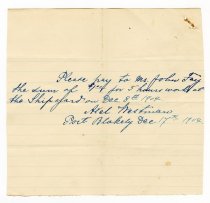 Please pay to Mr. John Fay
the sum of for 5 hours work at
the Shipyard on Dec 8th 1904
Axel Westman
Port Blakely Dec 17th 1904